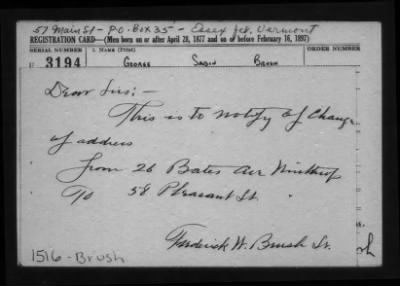 57 Main St - P.O. Box 35 - Essex Jct. Vermont
REGISTRATION CARD—(Men born on or after April 28, 1877 and on or before February 16, 1897)
SERIAL NUMBER 1. NAME (Print) ORDER NUMBER
U 3194 GEORGE SABIN BROWN
Dear Sirs:—
This is to notify of Change
of address
from 26 Bates Ave Winthrop
To 58 Pleasant St. "
Frederick W. Brush Sr.
1516-Brush